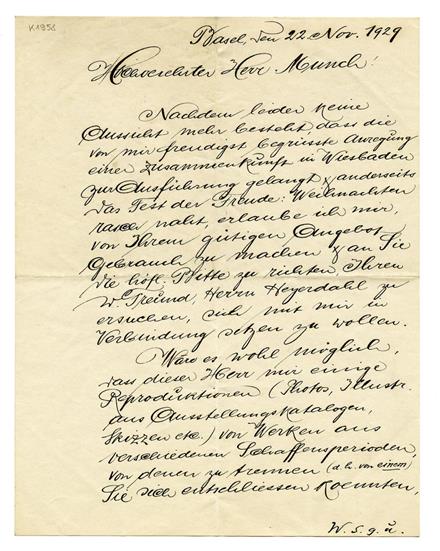 K1956
Basel, den 22 Nov. 1929
Hochverehrter Herr Munch!
Nachdem leider keine
Aussicht mehr besteht, dass die
von mir freudigst begrüsste Anregung
einer Zusammenkunft in Wiesbaden
zur Ausführung gelangt & anderseits
das Fest der Freude: Weihnachten
rasch naht, erlaube ich mir,
von Ihrem gütigen Angebot
Gebrauch zu machen & an Sie
die höfl. Bitte zu richten, Ihren
w. Freund, Herrn Heyerdahl zu
ersuchen, sich mit mir in
Verbindung setzen zu wollen.
Wäre es wohl möglich,
dass dieser Herr mir einige
Reproduktionen (Photos, Illustr.
aus Ausstellungskatalogen,
Skizzen etc.) von Werken aus
verschiedenen Schaffensperioden,
von denen zu trennen (d. h. von einem)
Sie sich entschliessen koennten,
W. s. g. ü.